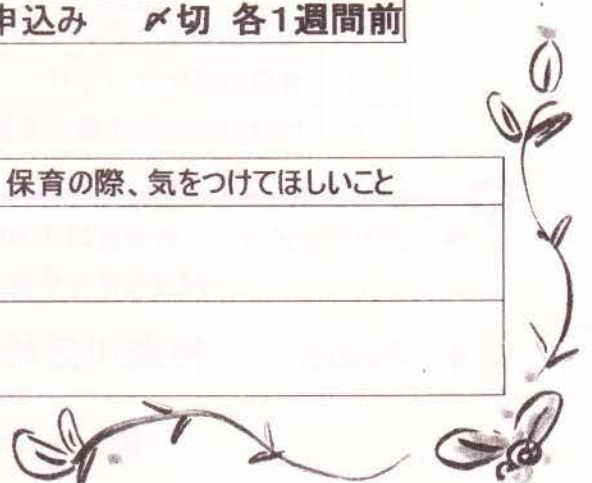 申込み 〆切 各1週間前
保育の際、気をつけてほしいこと